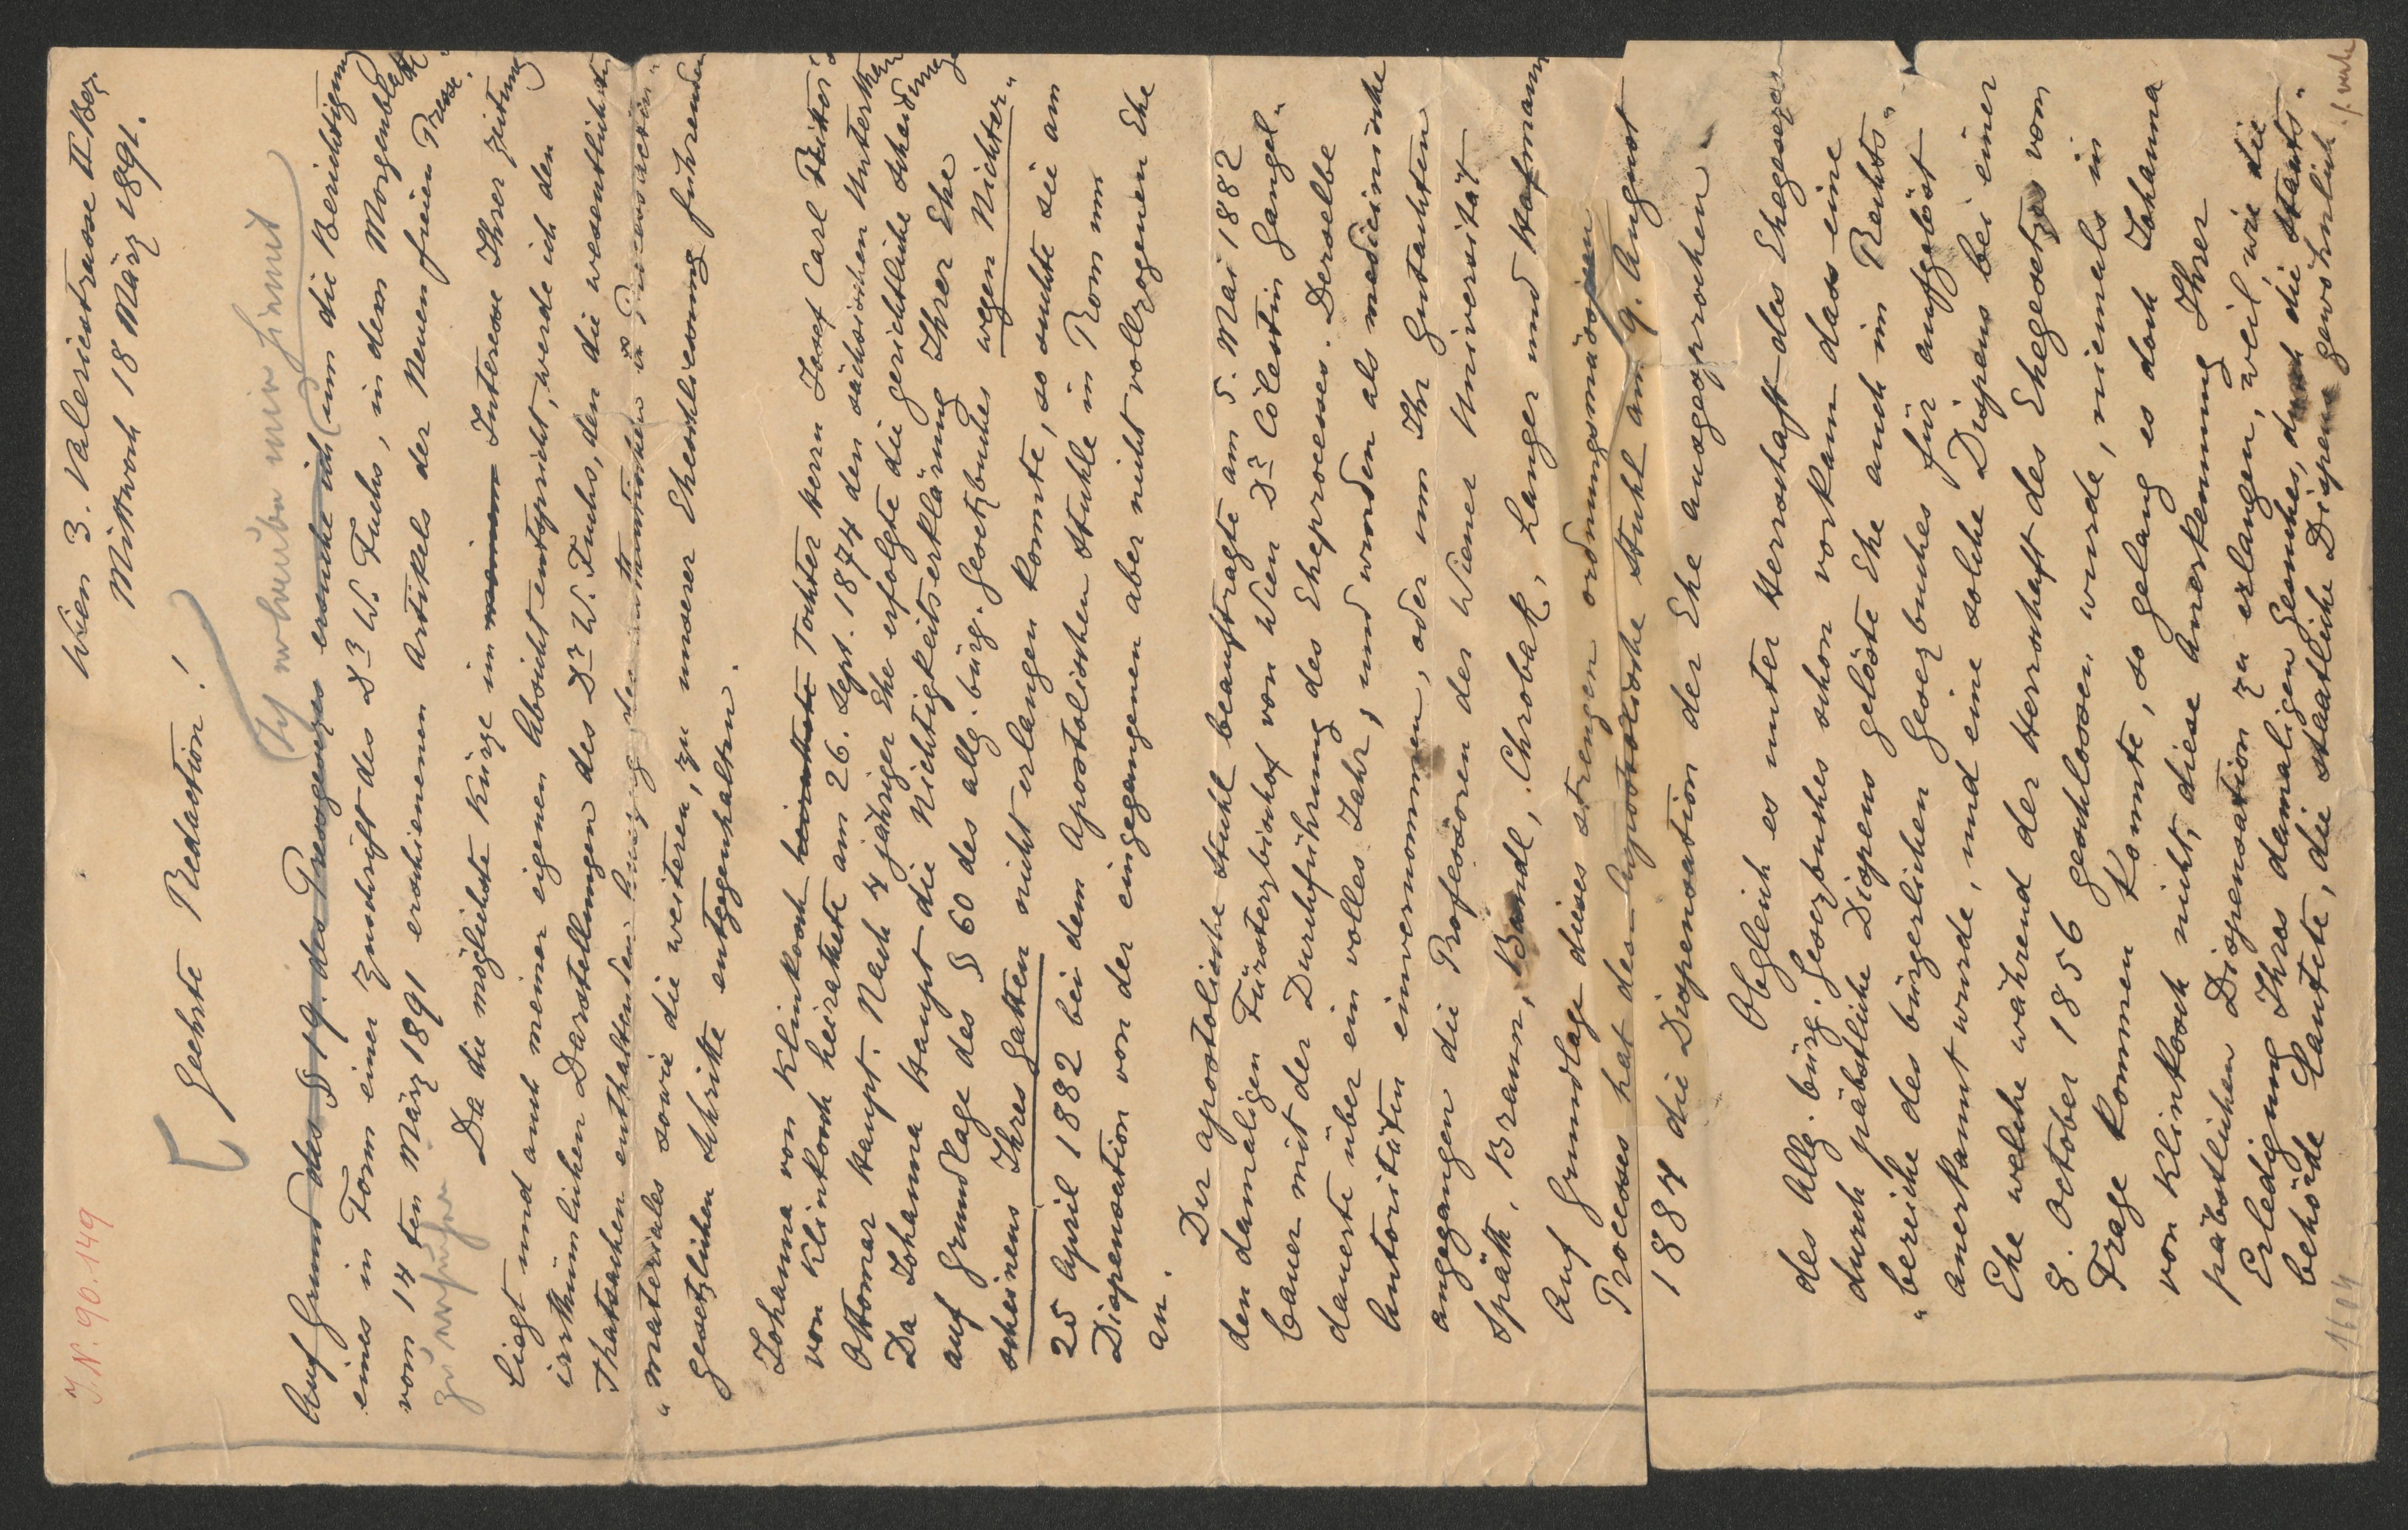 J.N. 90.149
Wien 3. Valeriestrasse II. Bez.
Mittwoch 18 März 1891.
Geehrte Redaction!
Ich erlaube mir hiermit
Auf Grund des § 19. des Pressgesezes ersuche ich um die Berichtigung
eines in Form einer Zuschrift des Dr W. Fuchs, in dem Morgenblatt
vom 14 ten März 1891 erschienenen Artikels der Neuen freien Presse.
Da die möglichste Kürze im meinem Interesse Ihrer Zeitung
liegt und auch meiner eigenen Absicht entspricht, werde ich den
irrthümlichen Darstellungen des Dr W. Fuchs, den die wesentlichsten
Thatsachen enthaltenden
„materiales sowie die weiteren, zu unserer Eheschliessung führenden
gesetzlichen Schritte entgegenhalten.
Johanna von Klinkosch heirathete Tochter Herrn Josef Carl Ritter
von Klinkosch heirathete am 26. Sept. 1874 den sächsischen Unterthan
Ottomar Haupt. Nach 4 jähriger Ehe erfolgte die gerichtliche Scheidung
Da Johanna Haupt die Nichtigkeitserklärung Ihrer Ehe
auf Grundlage des § 60 des allg. bürg. Gesetzbuches wegen Nichter-
scheinens Ihres Gatten nicht erlangen konnte, so suchte sie am
25 April 1882 bei dem Apostolischen Stuhle in Rom um
Dispensation von der eingegangenen aber nicht vollzogenen Ehe
an.
Der apostolische Stuhl beauftragte am 5. Mai 1882
den damaligen Fürsterzbischof von Wien Dr Cölestin Gangel-
bauer mit der Durchführung des Eheprocesses. Derselbe
dauerte über ein volles Jahr, und wurden als medicinische
Autoritäten einvernommen, oder um Ihr Gutachten
angegangen die Professoren der Wiener Universität
Späth, Braun, Bandl, Chrobak, Langer und Hofmann
Auf Grundlage dieses strengen ordnungsmässigen
Processes hat der Apostolische Stuhl am 9. August
1884 die Dispensation der Ehe ausgesprochen.
Obgleich es unter Herrschaft des Ehegesezes
des Allg. bürg. Gesezbuches schon vorkam dass eine
durch päbstliche Dispens gelöste Ehe auch im Rechts-
„bereiche des bürgerlichen Gesezbuches für aufgelöst
anerkannt wurde, und eine solche Dispens bei einer
Ehe welche während der Herrschaft des Ehegesetzes vom
8. October 1856 geschlossen wurde, niemals in
Frage kommen konnte, so gelang es doch Johanna
von Klinkosch nicht, diese Anerkennung Ihrer
päbstlichen Dispensation zu erlangen, weil wie die
Erledigung Ihres damaligen Gesuches, durch die Staats-
behörde lautete, die staatliche Dispens gewöhnlich